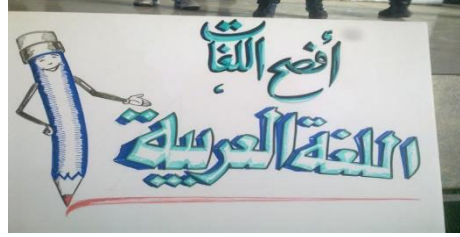 أفصح اللغات
اللغة العربية